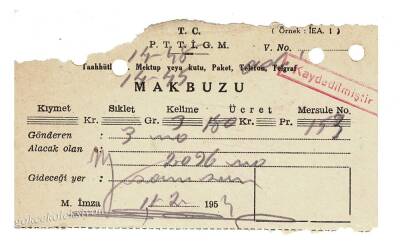 T. C. ( Örnek : İEA. 1 )
P. T. T. İ. G. M. V. No.
14-45
Taahhütl Mektup veya kutu, Paket, Telefon, Telgraf
14-45 adi
Kaydedilmiştir
MAKBUZU
Kıymet Sıklet Kelime Ücret Mersule No.
Kr. Gr. 3 180 Kr. Pr. 153
Gönderen 3 no
Alacak olan 2096 no
Gideceği yer Samsun
M. İmza 11.2. 195